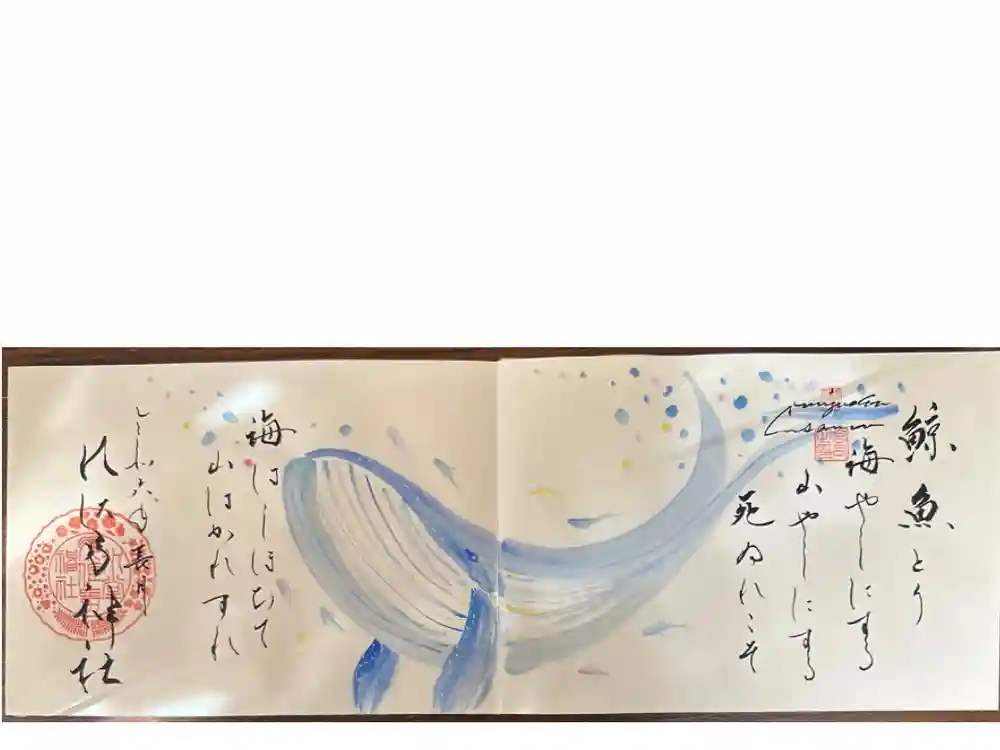 鯨魚とり
海やしにする
山やしにする
死ぬれこそ
海はしほひて
山はかれすれ
令和六年 長月
神社